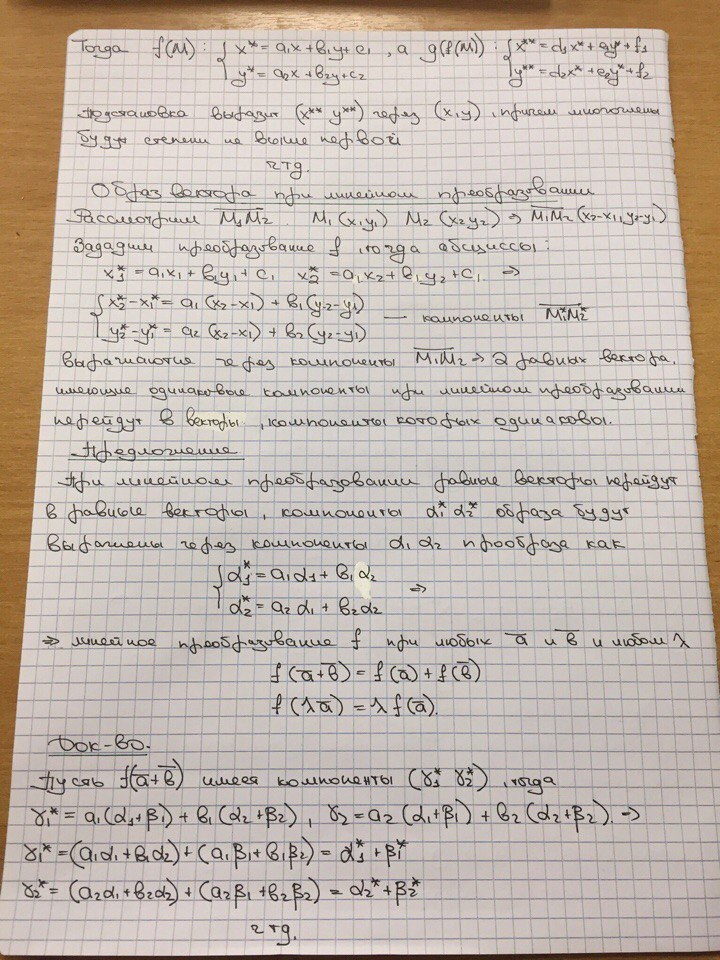 Тогда f(M): { x* = a₁x + b₁y + c₁ , а g(f(M)): { x** = d₁x* + e₁y* + f₁
y* = a₂x + b₂y + c₂ y** = d₂x* + e₂y* + f₂
Подстановка выразит (x** y**) через (x,y), причем многочлены
будут степени не выше первой
чтд.
Образ вектора при линейном преобразовании
Рассмотрим M₁M₂. M₁(x₁y₁) M₂(x₂y₂) ⇒ M₁M₂(x₂-x₁, y₂-y₁)
Зададим преобразование f, тогда абсциссы:
x₁* = a₁x₁ + b₁y₁ + c₁ x₂* = a₁x₂ + b₁y₂ + c₁ ⇒
{ x₂* - x₁* = a₁(x₂-x₁) + b₁(y₂-y₁)
y₂* - y₁* = a₂(x₂-x₁) + b₂(y₂-y₁) — компоненты M₁*M₂*
выражаются через компоненты M₁M₂ → 2 равных вектора,
имеющие одинаковые компоненты при линейном преобразовании
перейдут в векторы, компоненты которых одинаковы.
Предложение
При линейном преобразовании равные векторы перейдут
в равные векторы, компоненты α₁* α₂* образа будут
выражены через компоненты α₁ α₂ прообраза как
{ α₁* = a₁α₁ + b₁α₂
α₂* = a₂α₁ + b₂α₂ ⇒
⇒ линейное преобразование f при любых a и b и любом λ
f(a+b) = f(a) + f(b)
f(λa) = λf(a).
Док-во.
Пусть f(a+b) имеея компоненты (γ₁* γ₂*), тогда
γ₁* = a₁(α₁+β₁) + b₁(α₂+β₂), γ₂ = a₂(α₁+β₁) + b₂(α₂+β₂). ⇒
γ₁* = (a₁α₁+b₁α₂) + (a₁β₁+b₁β₂) = α₁* + β₁*
γ₂* = (a₂α₁+b₂α₂) + (a₂β₁+b₂β₂) = α₂* + β₂*
чтд.